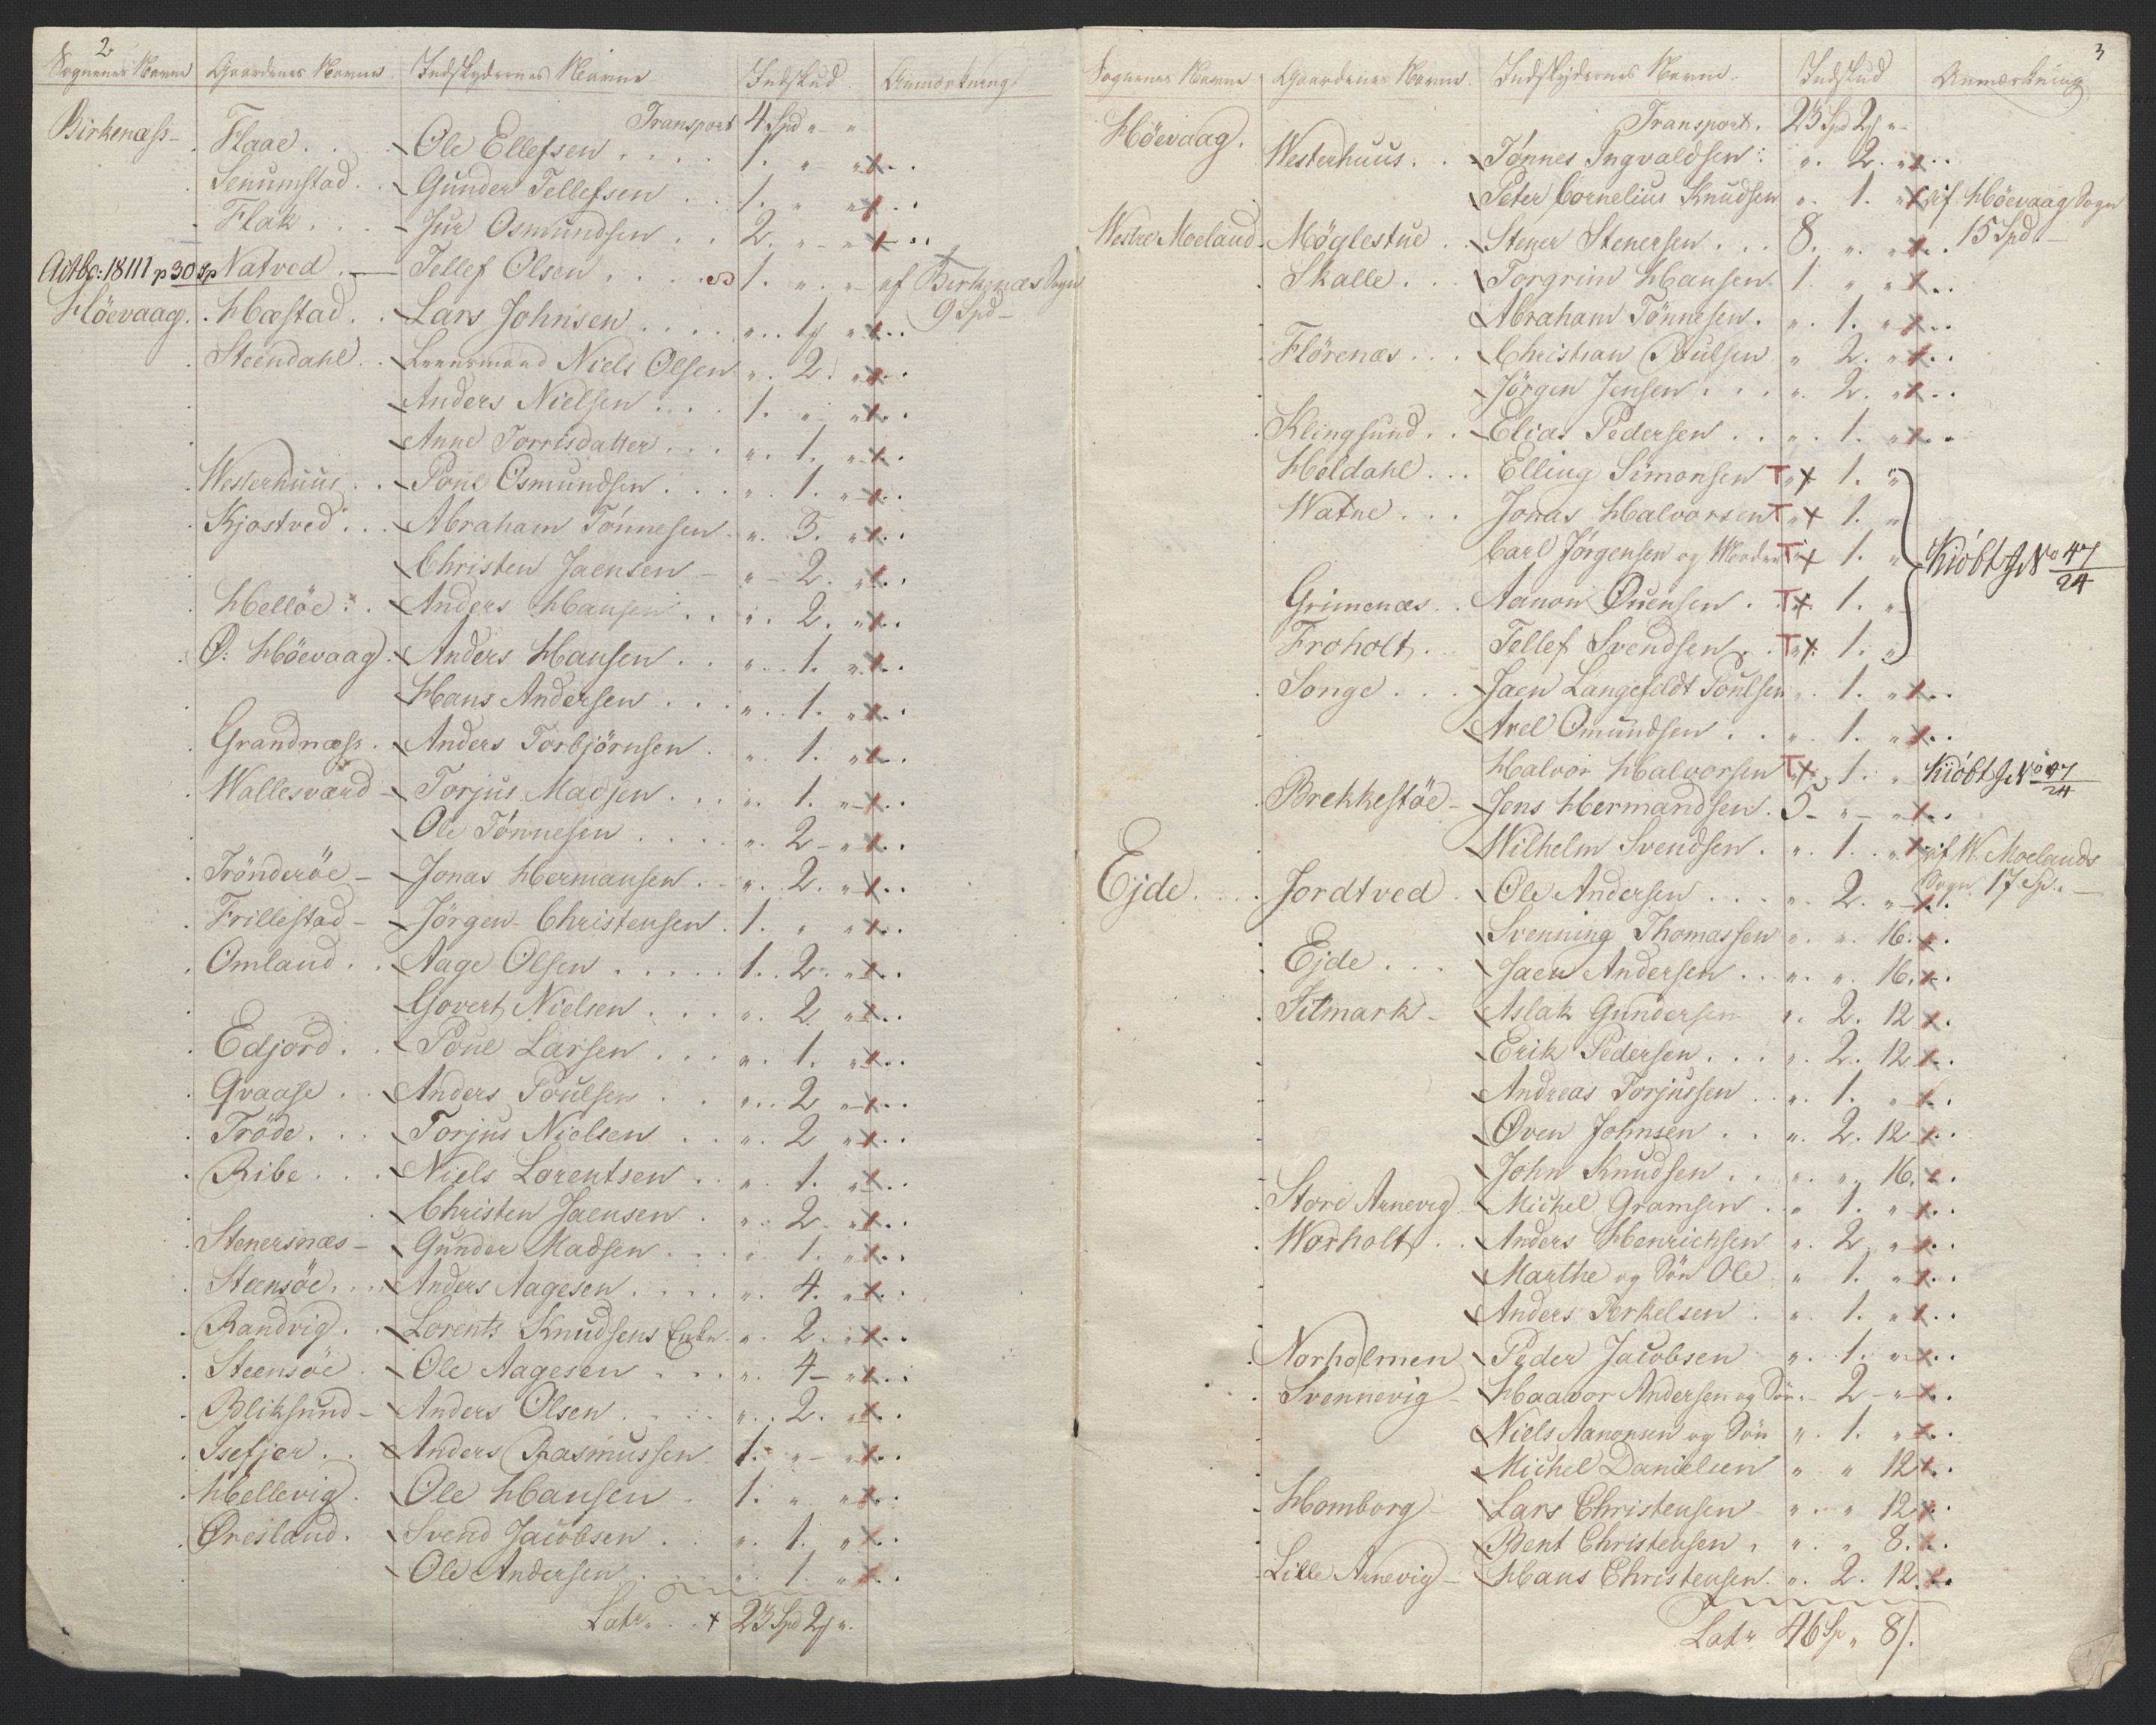 2
Sognenes Navne Gaardenes Navne Indskydernes Navne Indskud Anmærkning
Transport 4 Spd " "
Birkenæss - Flaae . . Ole Ellefsen . . . . 1. " " x . .
Senumstad . . Gunder Tellefsen . . 1. " " x . .
Flak . . . Jur Osmundsen . . 2. " " x . .
Natved . Tellef Olsen . . . 1. " " af Birkenæs Sogn
9 Spd -
Höevaag . . Hæstad . . Lars Johnsen . . . . " . 1 " x . .
Steendahl . . Leensmand Niels Olsen " . 2. " x . .
Anders Nielsen . . . 1. " " x . .
Anne Torrisdatter . . . " . 1. " x . .
Westerhuus . . Poul Osmundsen . . . " . 1. " x . .
Kjostved . . . Abraham Tönnesen " . 3. " x . .
Christen Jaensen - " - 2. " x . .
Hellöe . . Anders Hansen . . " . 2. " x . .
Ö: Höevaag . Anders Hansen . . " . 1. " x . .
Hans Andersen . . . " . 1. " x . .
Grandnæss . Anders Torbjörnsen . " . 1. " x . .
Wallesværd - Torjus Madsen . . . " . 1. " x . .
Ole Tönnesen . . . . " . 2 - " x . .
Trönderöe - Jonas Hermansen . - " . 2. " x . .
Frillestad - Jörgen Christensen . 1. " " x . .
Omland . . Aage Olsen . . . . . 1. . 2. " x . .
Govert Nielsen . . . " . 2 " x . .
Edjord . . Poul Larsen . . . " . 1. " x . .
Qvaase . . Anders Poulsen . . " . . 2 " x . .
Tröde . . . Torjus Nielsen . . " . 2 " x . .
Ribe . . . Niels Lorentsen . . " . 1. " x . .
Christen Jaensen . " . 2 - " x . .
Stenersnæs - Gunder Madsen . . . " 1. " x . .
Steensöe . . . Anders Aagesen . . . . " . 4. " x . .
Randvig . . Lorents Knudsens Enke " . 2. " x . .
Steensöe . Ole Aagesen . . . " . 4 - " x . .
Bliksund - Anders Olsen . . . . " . . 2. " x . .
Isefjer . . Anders Rasmussen 1. " - " x . .
Hellevig . Ole Hansen . 1. " " x . .
Öresland . Svend Jacobsen . . " . 1. " x . .
Ole Andersen . . " . 1. " x . .
Latr. . . + 23 Spd 2 "
3
Sognenes Navne Gaardenes Navne. Indskydernes Navne. Indskud Anmærkning
Transport. 23 Spd 2 "
Höevaag. Westerhuus. . . Tönnes Ingvaldsen . " . 2. " x . .
Peter Cornelius Knudsen " . 1. " x af Höevaag Sogn
15 Spd. -
Westre Moeland - Möglestue . . Stener Stenersen . . . 8. " . " x . .
Skalle . . . Torgrim Hansen. 1. " " x . .
Abraham Tönnesen. " . 1. " x . .
Flörenæs . . . Christian Poulsen " 2. " x . .
Jörgen Jensen . . . " . 2. " x . .
Klingsund . . Elias Pedersen . . " . 1. " x . .
Holdahl . . . Elling Simonsen T " x 1. "
Watne . . . Jonas Halvorsen T " x 1. "
Carl Jörgensen og Moder T " x 1. " Kiöbt J No 47/24
Grimenæs . . Aanon Ouensen . T x . 1. "
Froholt . . Tellef Svendsen . . T " x . 1. "
Songe . . . Jaen Langefeldt Poulsen " . 1. " x . .
Axel Omundsen . . " . 1. " x . .
Halvor Halvorsen T x . 1. " Kiöbt J No 47/24
Brekkestöe - Jens Hermandsen . 5 - " - " x . .
Wilhelm Svendsen . " . 1. " x af W. Moelands
Sogn 17 Sp. -
Ejde . . . Jordtved . Ole Andersen . . . " . 2. " x . .
Svenning Thomassen " . " . 16. x .
Ejde . . . Jaen Andersen . . " . " . 16. x .
Sitmark - Aslak Gundersen " . 2. 12 x .
Erik Pedersen . . . " . 2. 12 x . .
Andreas Torjussen . . " . 1. " x . .
Oven Johnsen . . " . 2. 12 x . .
John Knudsen . . " . " 16. x .
Store Arnevig - Michel Gramsen . " 1. " x . .
Worholt . . Anders Henrichsen " . 2. " x . .
Marthe og Sön Ole " 1. " x . .
Anders Terkelsen . " . 1. " x . .
Norholmen Peder Jacobsen " . 1. " x . .
Svennevig - Haavor Andersen og Sön " - 2 - " x . .
Niels Aanonsen og Sön " . 1. " x . .
Michel Danielsen " " 12 x .
Homborg - Lars Christensen " . " 12 x .
Bent Christensen . " . " 8. x .
Lille Arnevig - Hans Christensen . " . 2. 12. x .
Latr 46 Sp " 8